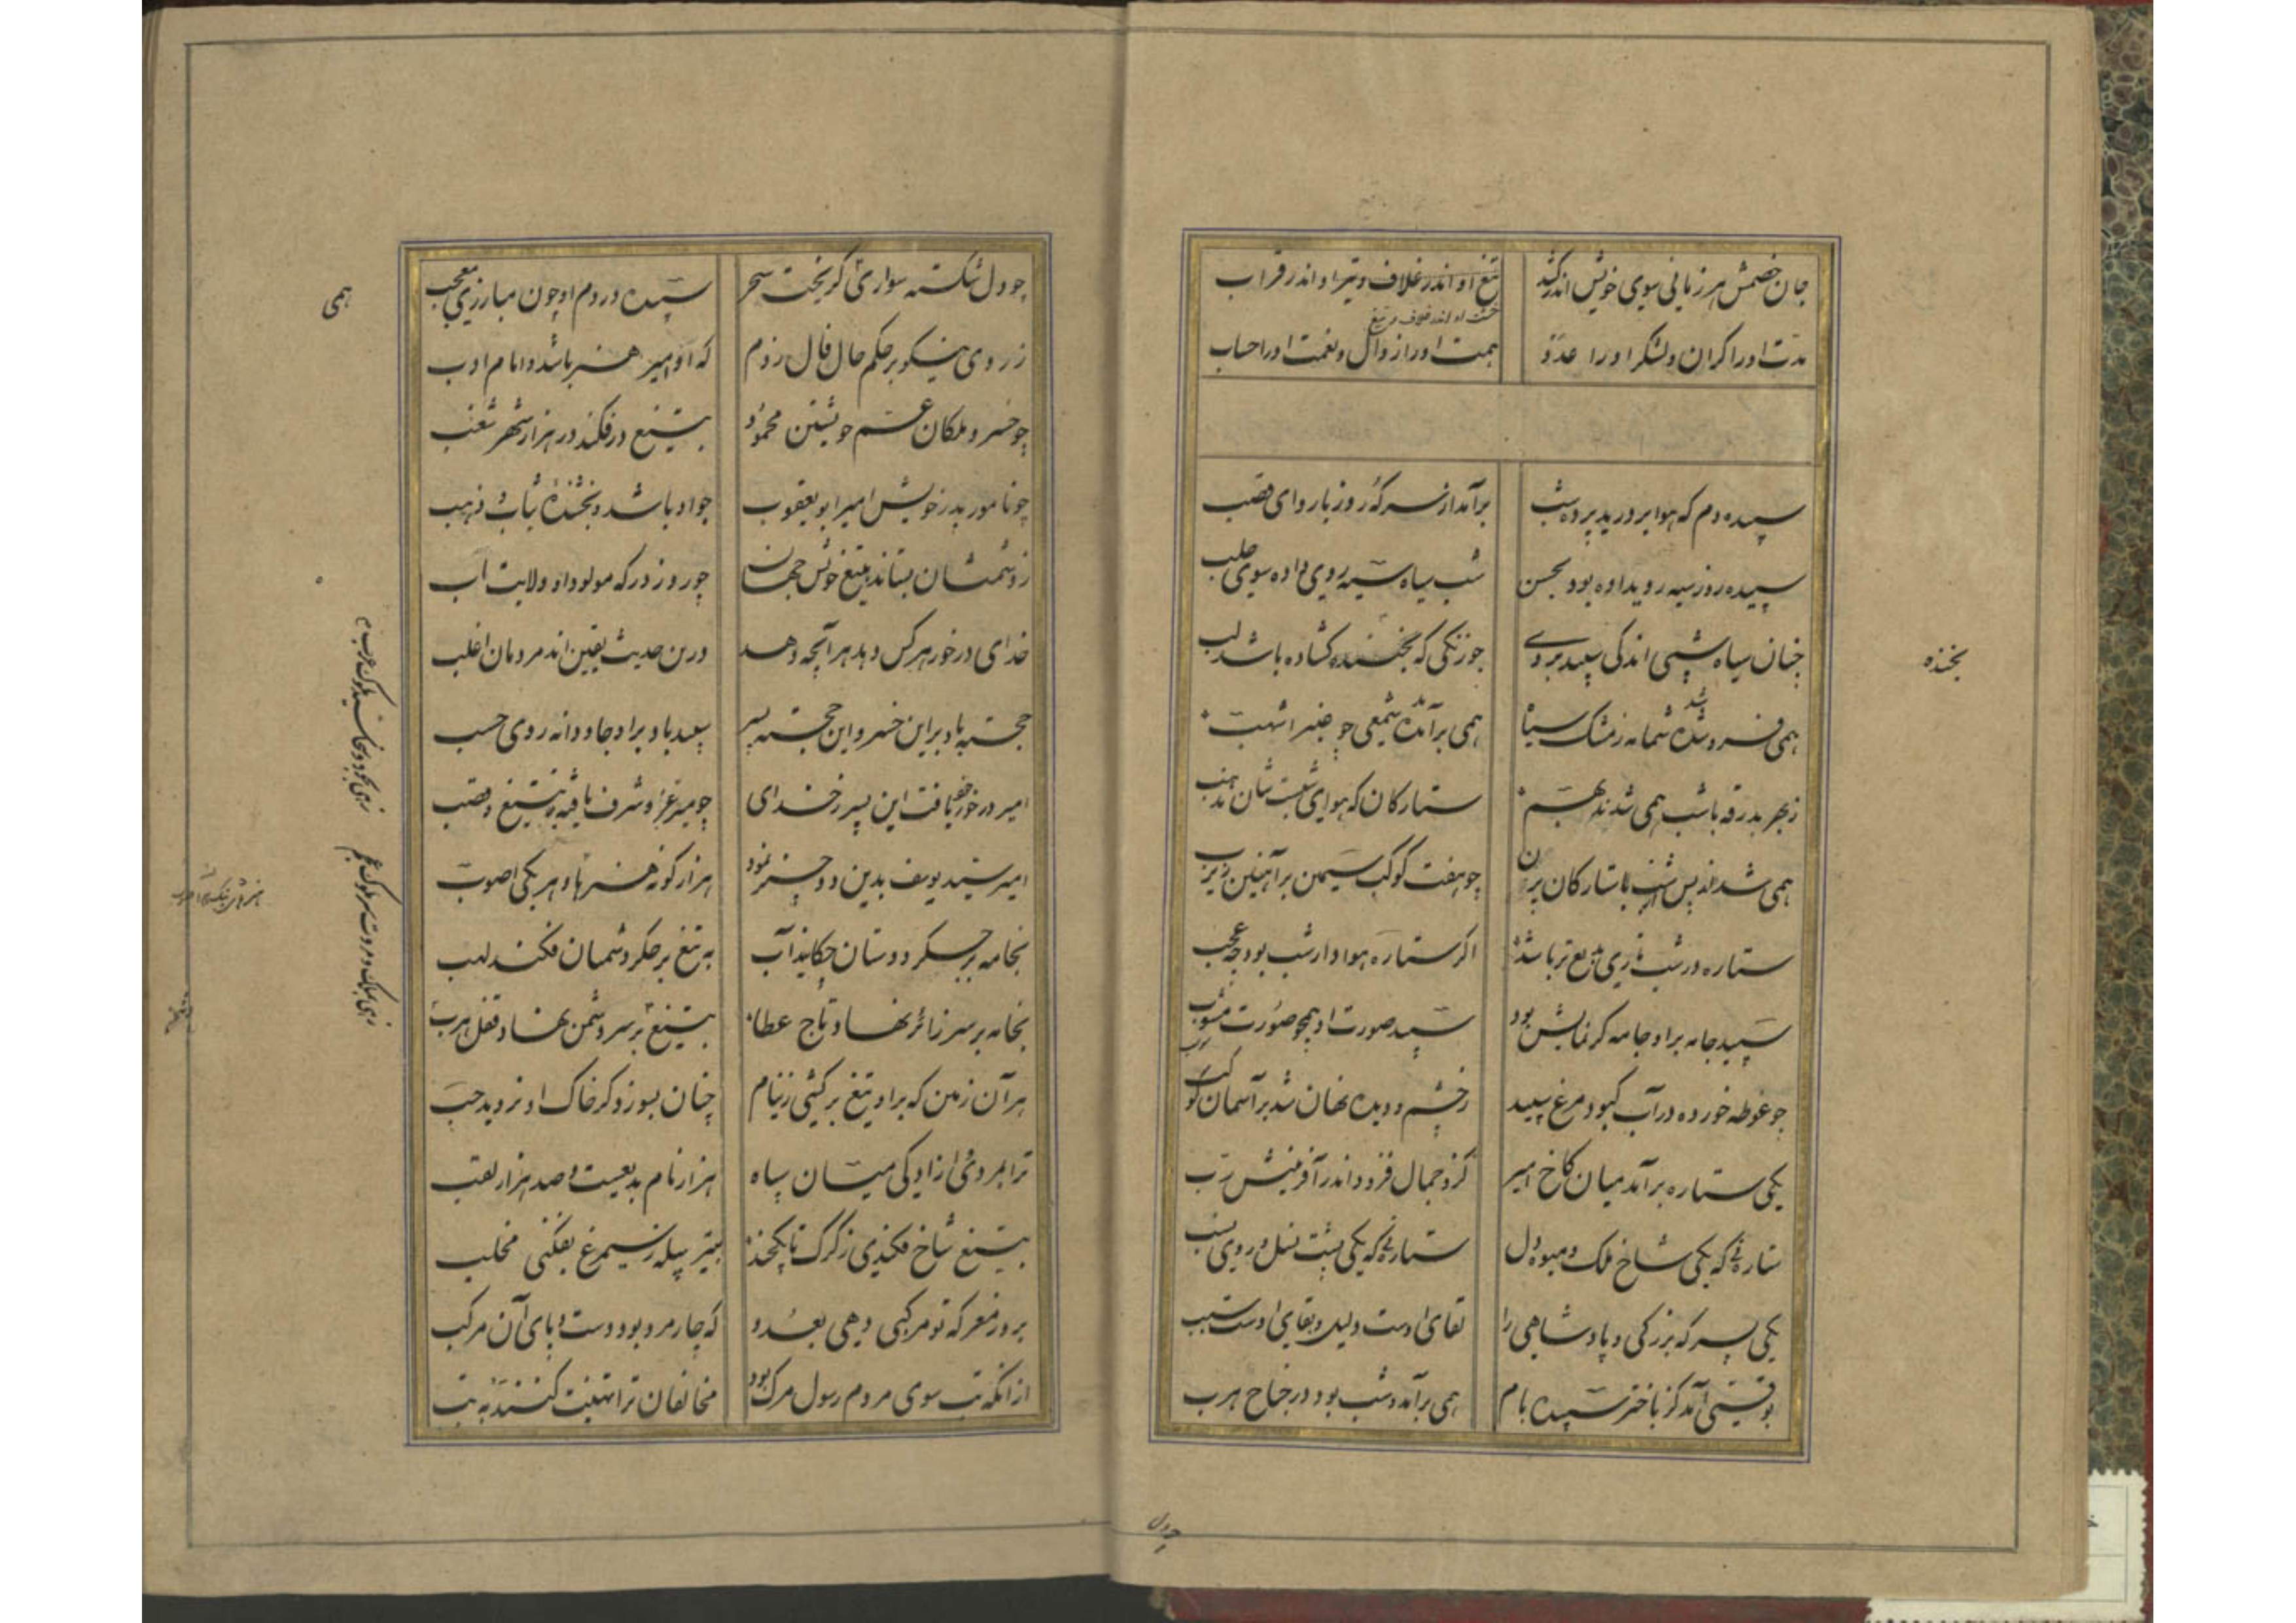 جان خصمش هر زمانی سوی خویش اندر کشد تیغ او اندر غلاف و تیر او اندر قراب
مدت او را کران و لشکر او را عدد همت او را زوال و نعمت او را حساب
سپیده دم که هوا بر درید پرده شب بر آمد از سر که روز با ردای قصب
سپیده روز سپه روی داده بود بحسن شب سیاه سپه روی داده سوی حلب
چنان سیاه شبی اندکی سپید بروی چو زنگی که بخنده گشاده باشد لب
بخنده
همی فرو شده شمامه ز مشک سیاه همی بر آمده شمعی چو عنبر اشهب
ز بهر بدرقه با شب همی شدند بهم ستارکان که هوای شبست شان مذهب
همی شدند پس شب ستارکان پرن چو هفت کوکب سیمین بر آهنین زیزب
ستاره در شب تاری بدیع تر باشد اگر ستاره هوادار شب بود چه عجب
سپید جامه بر او جامه گر نمایش بود سپید صورت او همچو صورت مشوب
چو غوطه خورده در آب کبود مرغ سپید ز چشم و دیده نهان شد بر آسمان کوکب
یکی ستاره بر آمد میان کاخ امیر کزو جمال فزود اندر آفرینش رب
ستاره‌ئی که یکی شاخ ملک و میوه دل ستاره‌ئی که یکی پشت نسل و روی نسب
یکی پسر که بزرگی و پادشاهی را لقای اوست دلیل و بقای اوست سبب
بوقتی آمد کز باختر سپیده بام همی بر آمد و شب بود در جناح هرب
چو دل
چو دل شکسته سواری گریخت سحر سپیده در دم او چون مبارزی معجب
همی
ز روی نیکو بر حکم حال فال زدم که او امیر هنر باشد و امام ادب
چو خسرو ملکان عم خویشتن محمود بتیغ در فکند در هزار شهر شغب
چو نامور پدر خویش امیر ابو یعقوب جواد باشد و بخشنده ثیاب و ذهب
ز دشمنان بستاند بتیغ خویش جهان چو روز در که مولود او ولایت اب
خدای در خور هر کس دهد هر آنچه دهد درین حدیث یقین اند مردمان اغلب
خجسته باد بر این خسرو این خجسته پسر سپید باد بر او جاودانه روی حسب
امیر در خور خود یافت این پسر ز خدای چو میر عز و شرف یافته بتیغ و قصب
امیر سید یوسف بدین دو چیز نمود هزار گونه هنرها و هر یکی اصوب
بخامه بر جگر دوستان چکاند آب به تیغ بر جگر دشمنان فکند لهب
بخانه بر سر زائر نهاد تاج عطا بتیغ بر سر دشمن نهاد قفل هرب
هر آن زمین که بر او تیغ بر کشی ز نیام چنان بسوزد کز خاک او نروید حب
ترا بمردی و آزادگی میان سپاه هزار نام بدیعست و صد هزار لقب
بتیغ شاخ فکندی ز کرگ تا یکچند بتیر پیله ز سیمرغ بفکنی مخلب
بروز معرکه تو مرکبی دهی بعدو که چار مرد بود دست و پای آن مرکب
از آنکه تب سوی مردم رسول مرگ بود مخالفان ترا تهنیت کنند به تب